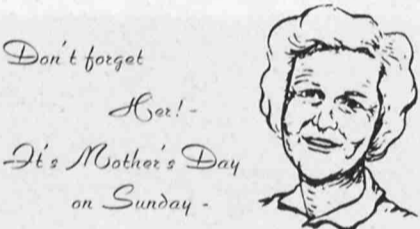 Don't forget
Her! -
It's Mother's Day
on Sunday -